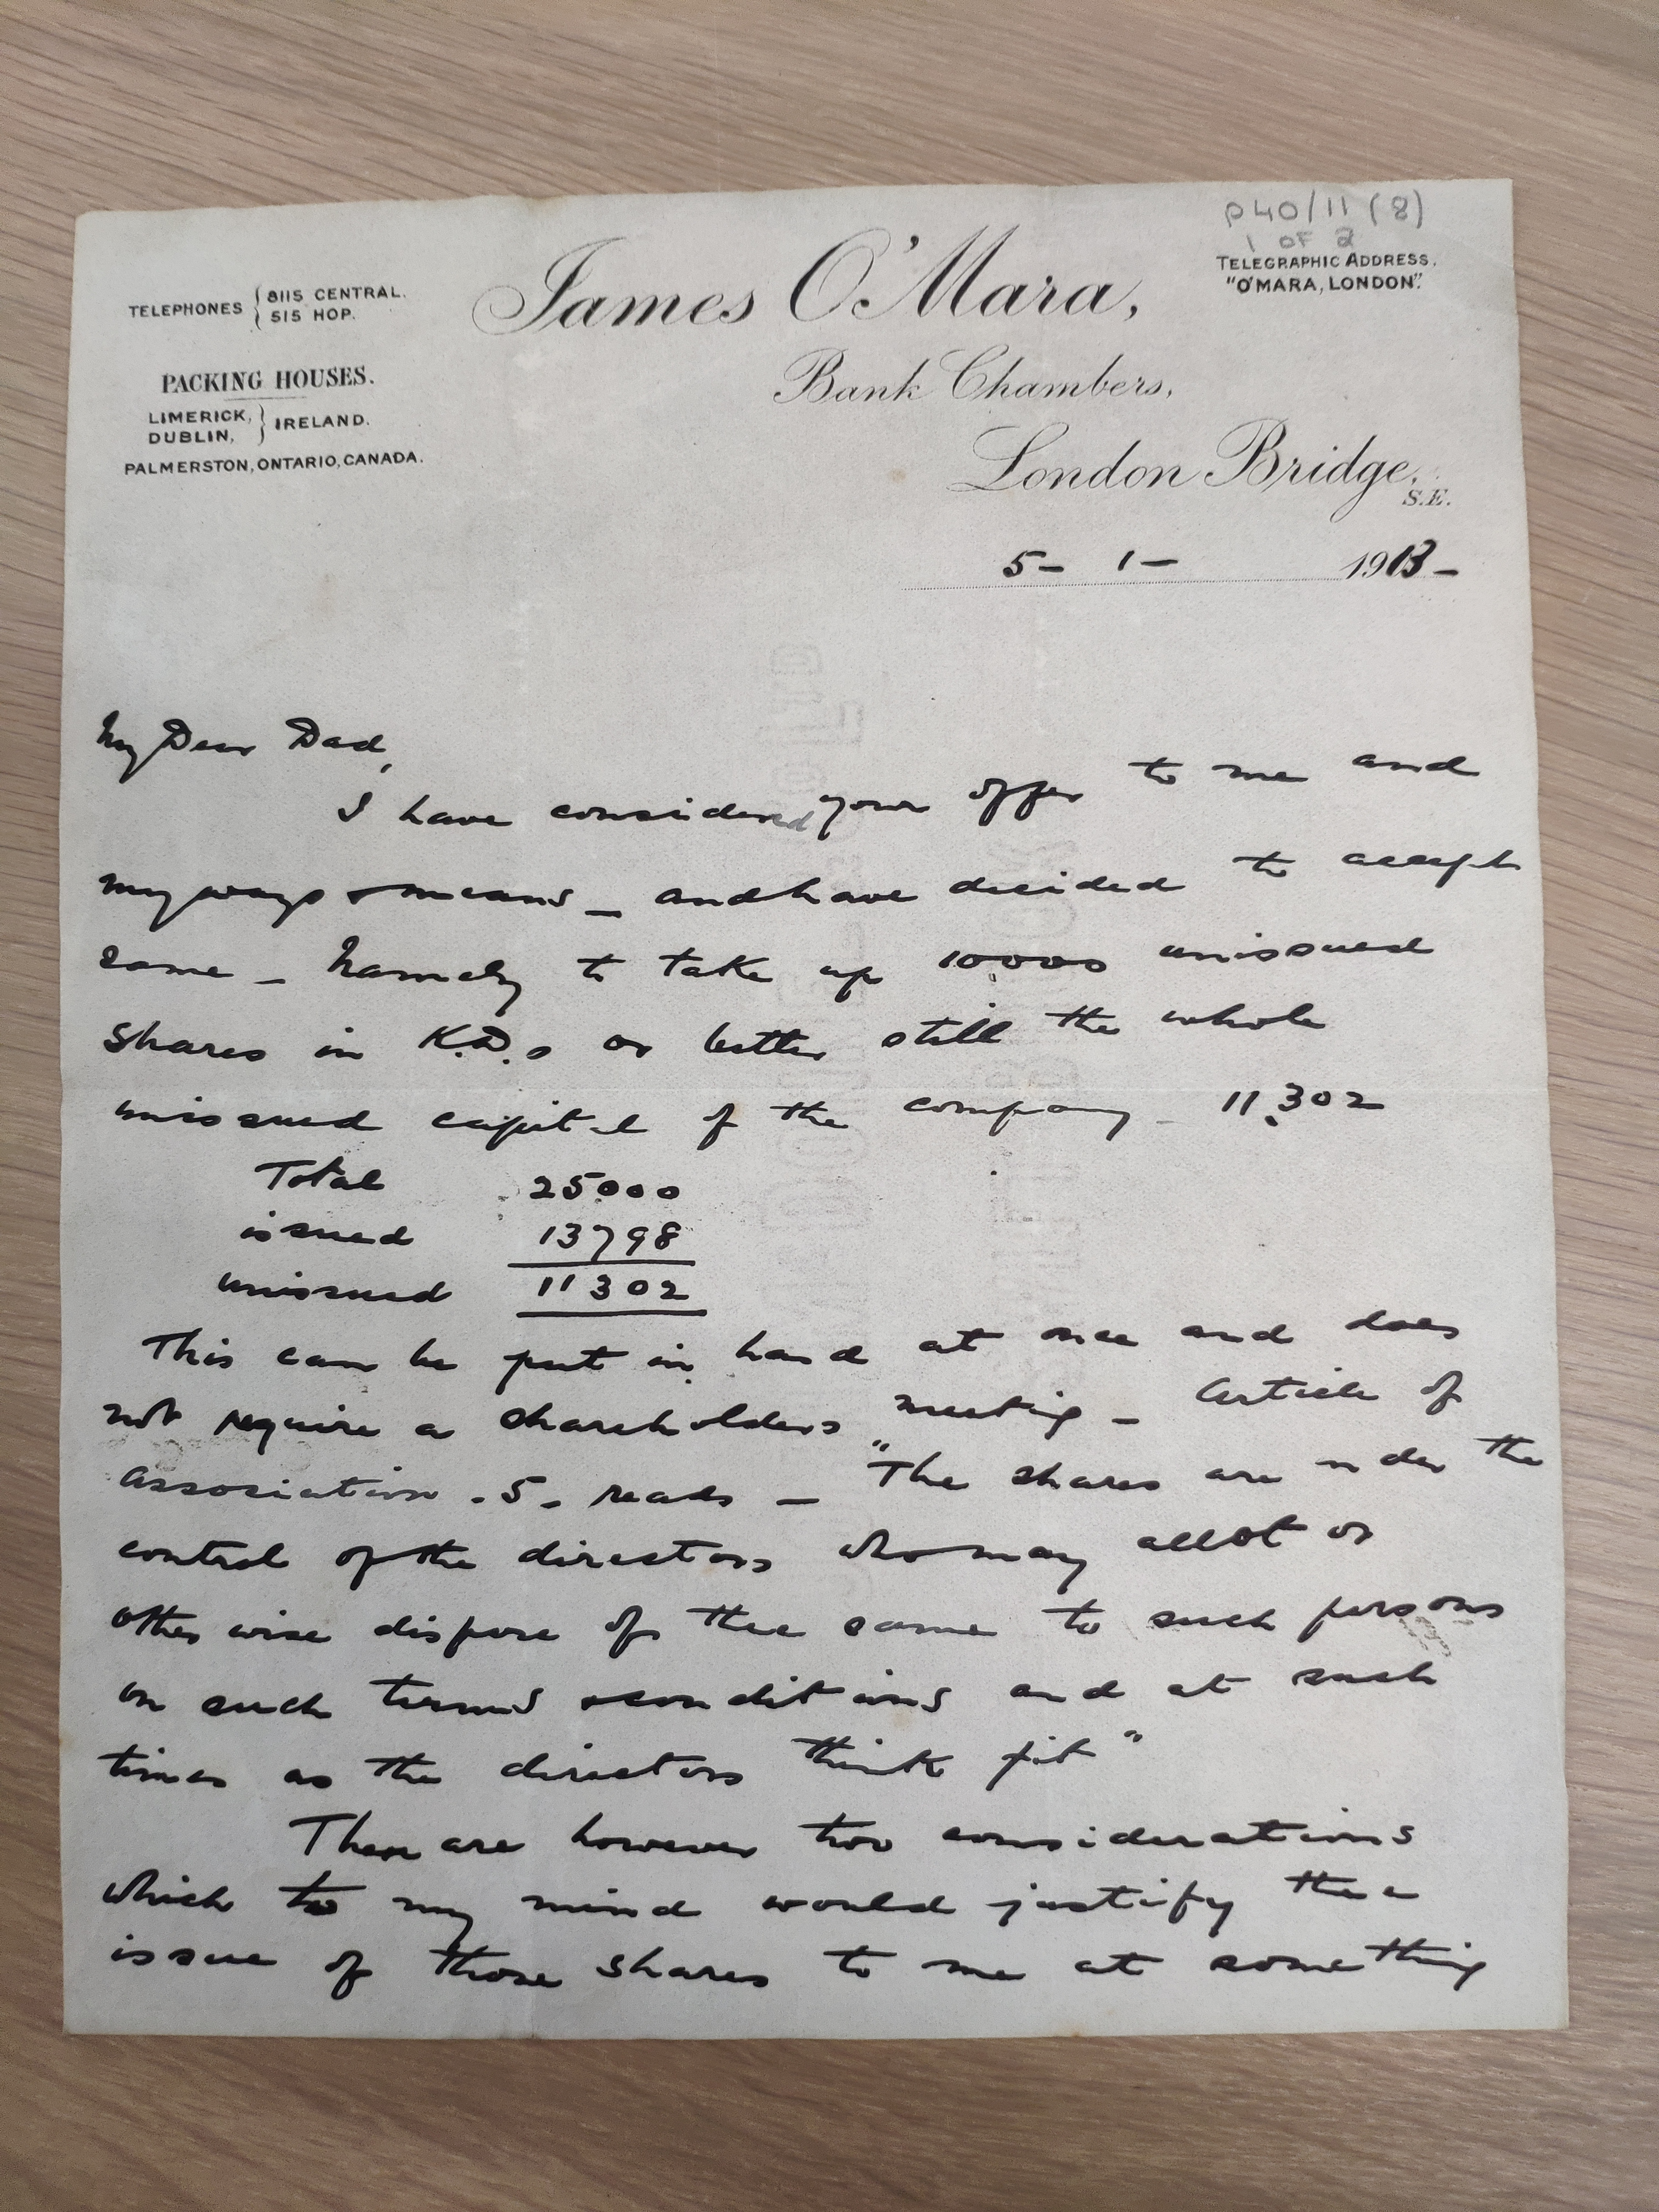 P40/11 (8)
1 OF 2
TELEPHONES { 8115 CENTRAL.
515 HOP.
James O'Mara,
TELEGRAPHIC ADDRESS.
"O'MARA, LONDON".
PACKING HOUSES.
LIMERICK, } IRELAND.
DUBLIN,
PALMERSTON, ONTARIO, CANADA.
Bank Chambers,
London Bridge,
S.E.
5 - 1 - 1913 -
My Dear Dad,
I have considered your offer to me and
my ways & means _ and have decided to accept
same _ Namely to take up 10000 unissued
shares in K.D.s or better still the whole
unissued capital of the company _ 11,302
Total 25000
issued 13798
unissued 11302
This can be put in hand at once and does
not require a shareholders meeting _ Article of
Association . 5 . reads _ "The shares are under the
control of the directors who may allot or
otherwise dispose of the same to such persons
on such terms & conditions and at such
times as the directors think fit"
There are however two considerations
which to my mind would justify the
issue of those shares to me at something